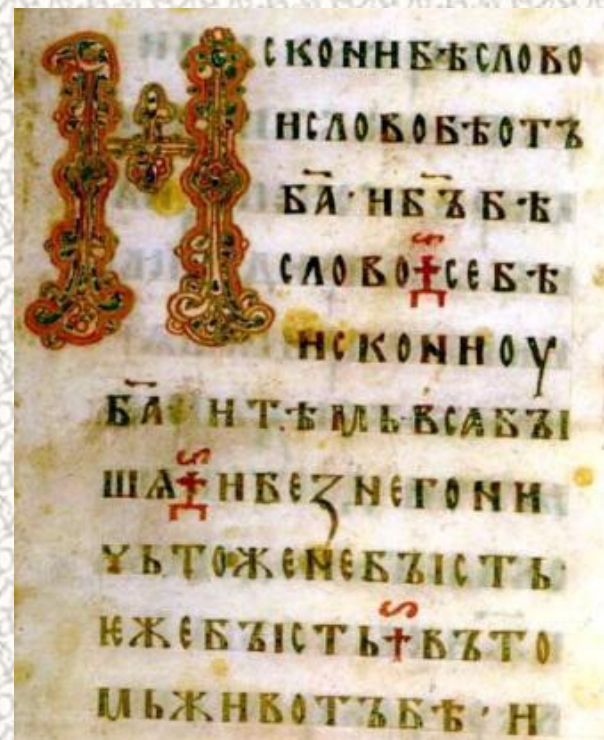 ИСКОНИБѢСЛОВО
ИСЛОВОБѢОТЪ
БА҃·ИБЪ҃БѢ
СЛОВО†СЕБѢ
ИСКОНИОУ
БА҃ ИТѢМЬВСѦБꙐ
ШѦ†ИБЕЗНЕГОНИ
ЧЬТОЖЕНЕБꙐСТЬ
ѤЖЕБꙐСТЬ†ВЪТО
МЬЖИВОТЪБѢ·И